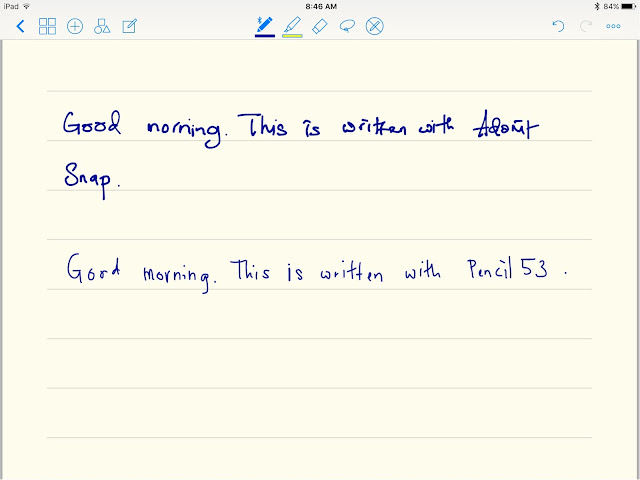 iPad 8:46 AM 84%
Good morning. This is written with Adonit
Snap.
Good morning. This is written with Pencil 53.